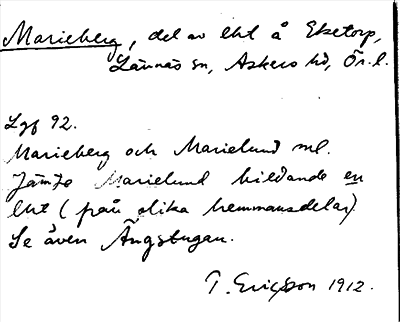 Marieberg, del av lht å Eketorp,
Lännäs sn, Askers hd, Ör. l.
Lgf 92.
Marieberg och Marielund ml.
Jämto Marielund bildande en
lht (från olika hemmansdelar).
Se även Ängstugan.
T. Ericsson 1912.